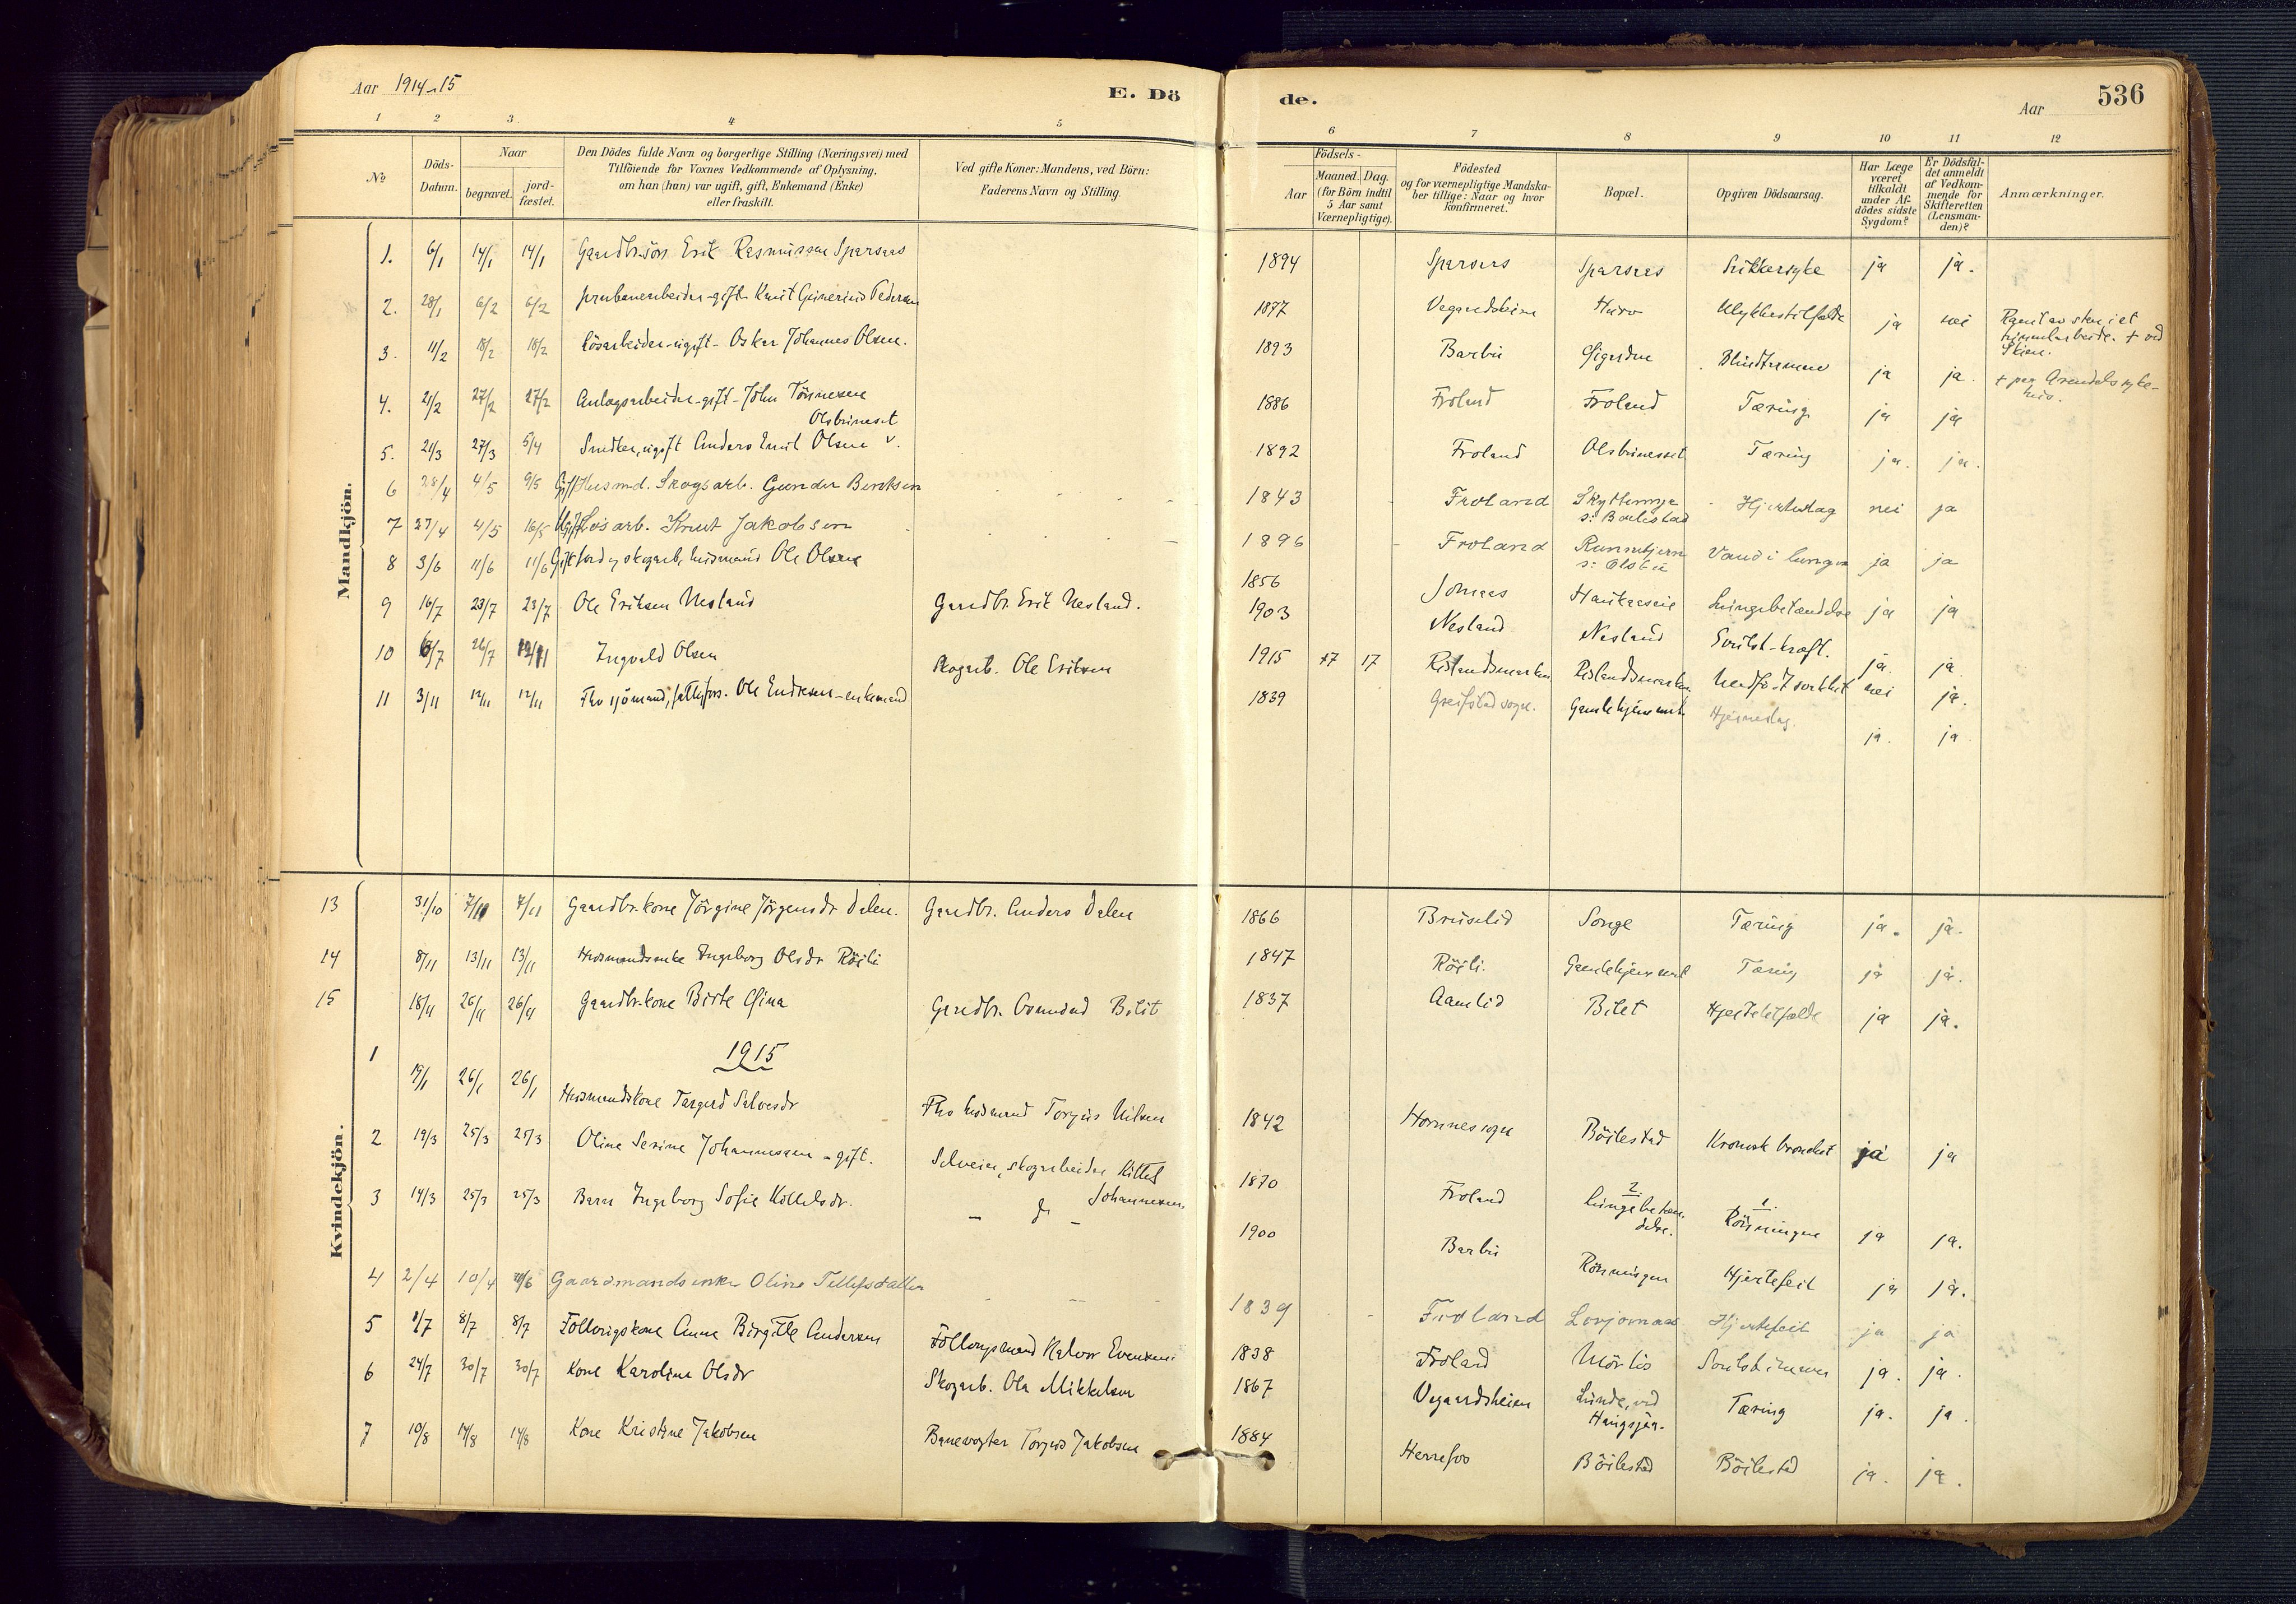 Aar 1914-15
E. Dö
de.
Aar
536
1 2 3 4 5 6 7 8 9 10 11 12
№
Döds-Datum.
Naar
begravet.
jord-fæstet.
Den Dödes fulde Navn og borgerlige Stilling (Næringsvei) med
Tilföiende for Voxnes Vedkommende af Oplysning,
om han (hun) var ugift, gift, Enkemand (Enke)
eller fraskilt.
Ved gifte Koner: Mandens, ved Börn:
Faderens Navn og Stilling.
Födsels-
Aar
Maaned. Dag.
(for Börn indtil
5 Aar samt
Værnepligtige).
Födested
og for værnepligtige Mandska-
ber tillige: Naar og hvor
konfirmeret.
Bopæl.
Opgiven Dödsaarsag.
Har Læge
været
tilkaldt
under Af-
dödes sidste
Sygdom?
Er Dödsfal-
det anmeldt
af Vedkom-
mende for
Skifteretten
(Lensman-
den)?
Anmærkninger.
Mandkjön.
1. 6/1 14/1 14/1 Gaardbr.sön Erik Rasmussen Sparsaas 1894 Sparsaas Sparsaas Sukkersyke ja ja.
2. 28/1 6/2 6/2 gift Knut Pedersen 1877 Ulykkestilfælde ja nei
3. 11/2 18/2 18/2 Lösarbeider-ugift- Oskar Johannes Olsen. 1893 Barbu ja ja. + paa Arendals syke-
hus.
4. 21/2 27/2 27/2 Anlægsarbeider-gift-John Tönnesen 1886 Froland Froland Tæring ja ja
Olsbuneset
5. 21/3 27/3 5/4 Snedker, ugift Anders Emil Olsen v. 1892 Froland Olsbuneset Tæring ja. ja.
6 28/4 4/5 9/5 Gift Husmd. Skogsarb. Gunder Bentsen 1843 Froland s: Böilestad Hjerteslag nei ja
7 27/4 4/5 16/5 Ugift Lösarb. Knut Jakobsen 1896 Froland s: Olsbu Vand i lungen ja ja
8 3/6 11/6 11/6 Gift skogarb. husmand Ole Olsen 1856 Jomaas Lungebetændelse ja ja
9 16/7 23/7 23/7 Ole Eriksen Nesland Gaardbr. Erik Nesland. 1903 Nesland Nesland ja ja
10 6/7 26/7 Ingvald Olsen Skogarb. Ole Eriksen 1915 17 Rislandsmarken Rislandsmarken Medfödt svakhet nei ja.
11 3/11 12/11 12/11 Fhv sjömand, Ole Endresen-enkemand 1839 Greifstad sogn. Gamlehjemmet Hjerneslag. ja. ja
Kvindekjön.
13 31/10 7/11 7/11 Gaardbr.kone Jörgine Jörgensdr Dalen. Gaardbr. Anders Dalen 1866 Bruselid Songe Tæring ja. ja.
14 8/11 13/11 13/11 Husmandsenke Ingeborg Olsdr Röili 1847 Röili. Gamlehjemmet Tæring ja ja.
15 18/11 26/11 26/11 Gaardbr.kone Birte Gina Gaardbr. Osmund Bilit 1837 Aamlid Bilet Hjertetilfælde ja ja.
1915
1 19/1 26/1 26/1 Husmandskone Targerd Salvesdr Fhv husmand Torjus Nilsen 1842 Hornnes sogn Böilestad Kronisk bronchit ja ja
2 19/3 25/3 25/3 Oline Serine Johannessen - gift. Selveier, skogarbeider Kittel
Johannesen. 1870 Froland 2 Lungebetæn-
delse. 1. Rönningen ja ja.
3 14/3 25/3 25/3 Barn Ingeborg Sofie Kittelsdr. - do - 1900 Barbu Rönningen Hjertefeil ja ja.
4 2/4 10/4 Gaardmandsenke Oline Tellefsdatter 1839 Froland Lovjomaas Hjertefeil ja ja
5 1/7 8/7 8/7 Föllougskone Anne Birgitte Andersen Föllougsmand Halvor Evensen 1838 Froland Mörlid ja. ja.
6 24/7 30/7 30/7 Kone Karoline Olsdr Skogarb. Ola Mikkelsen 1867 Vegaardsheien Lunde, ved
Haugsjaa. Tæring ja. ja.
7 10/8 14/8 14/8 Kone Kristine Jakobsen Banevogter Torjus Jakobsen 1884 Herrefos Böilestad Böilestad ja. ja.